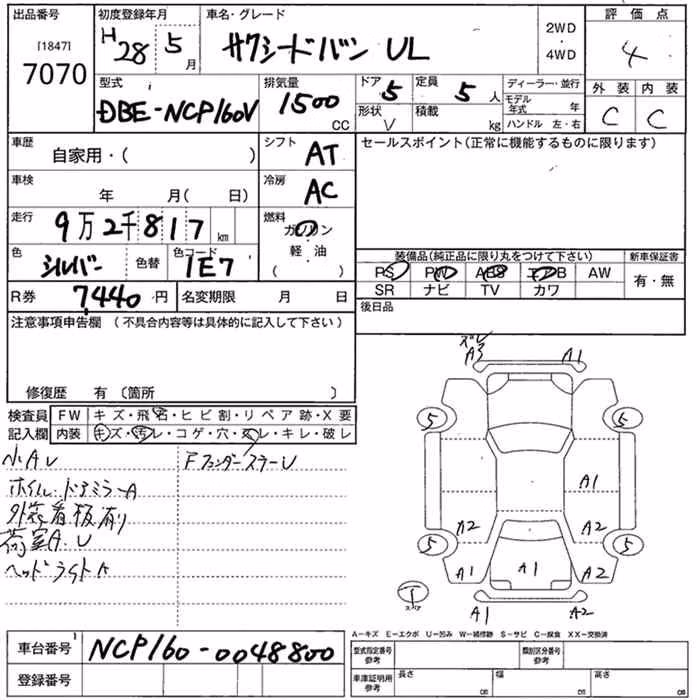 出品番号
[1847]
7070
初度登録年月
H28 5月
車名・グレード
サクシードバン UL
2WD
・
4WD
評価点
4
外装 内装
C C
型式
DBE-NCP160V
排気量
1500 CC
ドア 5
形状 V
定員 5人
積載 kg
ディーラー・並行
モデル年式 年
ハンドル 左・右
車歴
自家用・( )
シフト AT
車検
年 月( 日)
冷房 AC
走行
9万2千817km
燃料
ガソリン
・
軽・油
( )
色 シルバー 色替
色コード 1E7
R券 7440円
名変期限 月 日
セールスポイント(正常に機能するものに限ります)
装備品(純正品に限り丸をつけて下さい)
PS PW ABS エアB AW
SR ナビ TV カワ
新車保証書
有・無
後日品
注意事項申告欄 (不具合内容等は具体的に記入して下さい)
修復歴 有(箇所 )
検査員
記入欄
FW キズ・飛石・ヒビ割・リペア跡・X要
内装 キズ・汚レ・コゲ・穴・スレ・キレ・破レ
小A U
ホイル.ドアミラーA
外装看板有り
荷室A.U
ヘッドライトA
Fフェンダーステー U
ズレ
A3 A1
5 5
A1
A2 A2
5 5
A1 A1 A2
A1 A2
A-キズ E-エクボ U-凹み W-補修跡 S-サビ C-腐食 XX-交換済
車台番号 NCP160-0048800
登録番号
型式指定番号 参考
類別区分番号 参考
車庫証明用 参考
長さ cm 幅 cm 高さ cm